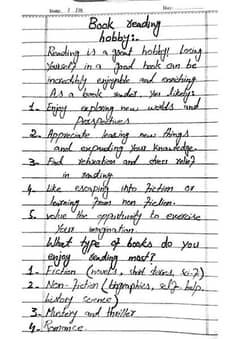 Book reading
hobby:.
Reading is a great hobby! Losing
yourself in a good book can be
incredibly enjoyable and enriching
As a book reader, you likely:
1- Enjoy exploring new worlds and
Perspectives
2- Appreciate learing new things
and expanding your knowledge.
3- Find relaxation and stress relief
in reading
4. Like escaping into fiction or
learning from non fiction.
5. value the opportunity to exercise
your imagination.
What type of books do you
enjoy reading most?
1- Fiction (novels, short stories, sci-f)
2- Non-fiction (biographics, self-help,
history science)
3- Mystery and thriller
4- Romance.